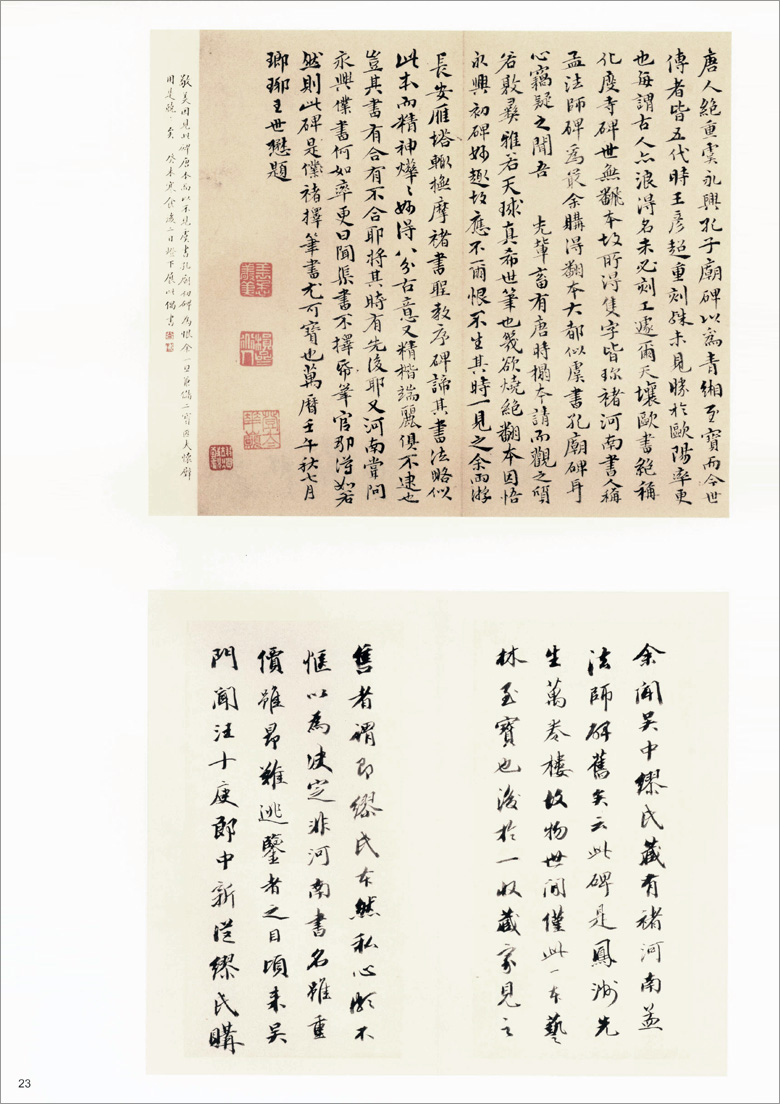 唐人絕重虞永興孔子廟碑以為青緗至寶而今世
傳者皆五代時王彥超重刻殊未見勝於歐陽率更
也每謂古人亦浪得名未必刻工遽爾天壤歐書絕稱
化度寺碑世無翻本故所得隻字皆珎褚河南書人稱
孟法師碑為最余購得翻本大都似虞書孔廟碑耳
心竊疑之聞吾 先輩畜有唐時搨本請而觀之質
若敦彝雅若天球真希世筆也幾欲燒絕翻本因悟
永興初碑妙趣故應不爾恨不生其時一見之余両游
長安雁塔輙搨摩褚書聖教序碑諦其書法略似
此本而精神燁〻妙得八分古意又精楷端麗俱不逮也
豈其書有合有不合耶將其時有先後耶又河南嘗問
永興僕書何如率更曰聞渠書不擇帋筆官那得如若
然則此碑是僕褚擇筆書尤可寶也萬曆壬午秋七月
瑯琊王世懋題
敬美因見此碑唐本而以不見虞書孔廟初碑為恨余一旦兼
用是曉矣 癸未寒食後二日燈下展此偶書
余聞吳中繆氏藏有褚河南孟
法師碑舊矣云此碑是鳳洲先
生萬卷樓故物世間僅此一本藝
林至寶也後於一收藏家見之
售者謂即繆氏本然私心頗不
愜以為決定非河南書名雖重
價雖昂難逃鑒者之目頃來吳
門聞汪十庋郎中新從繆氏購
23